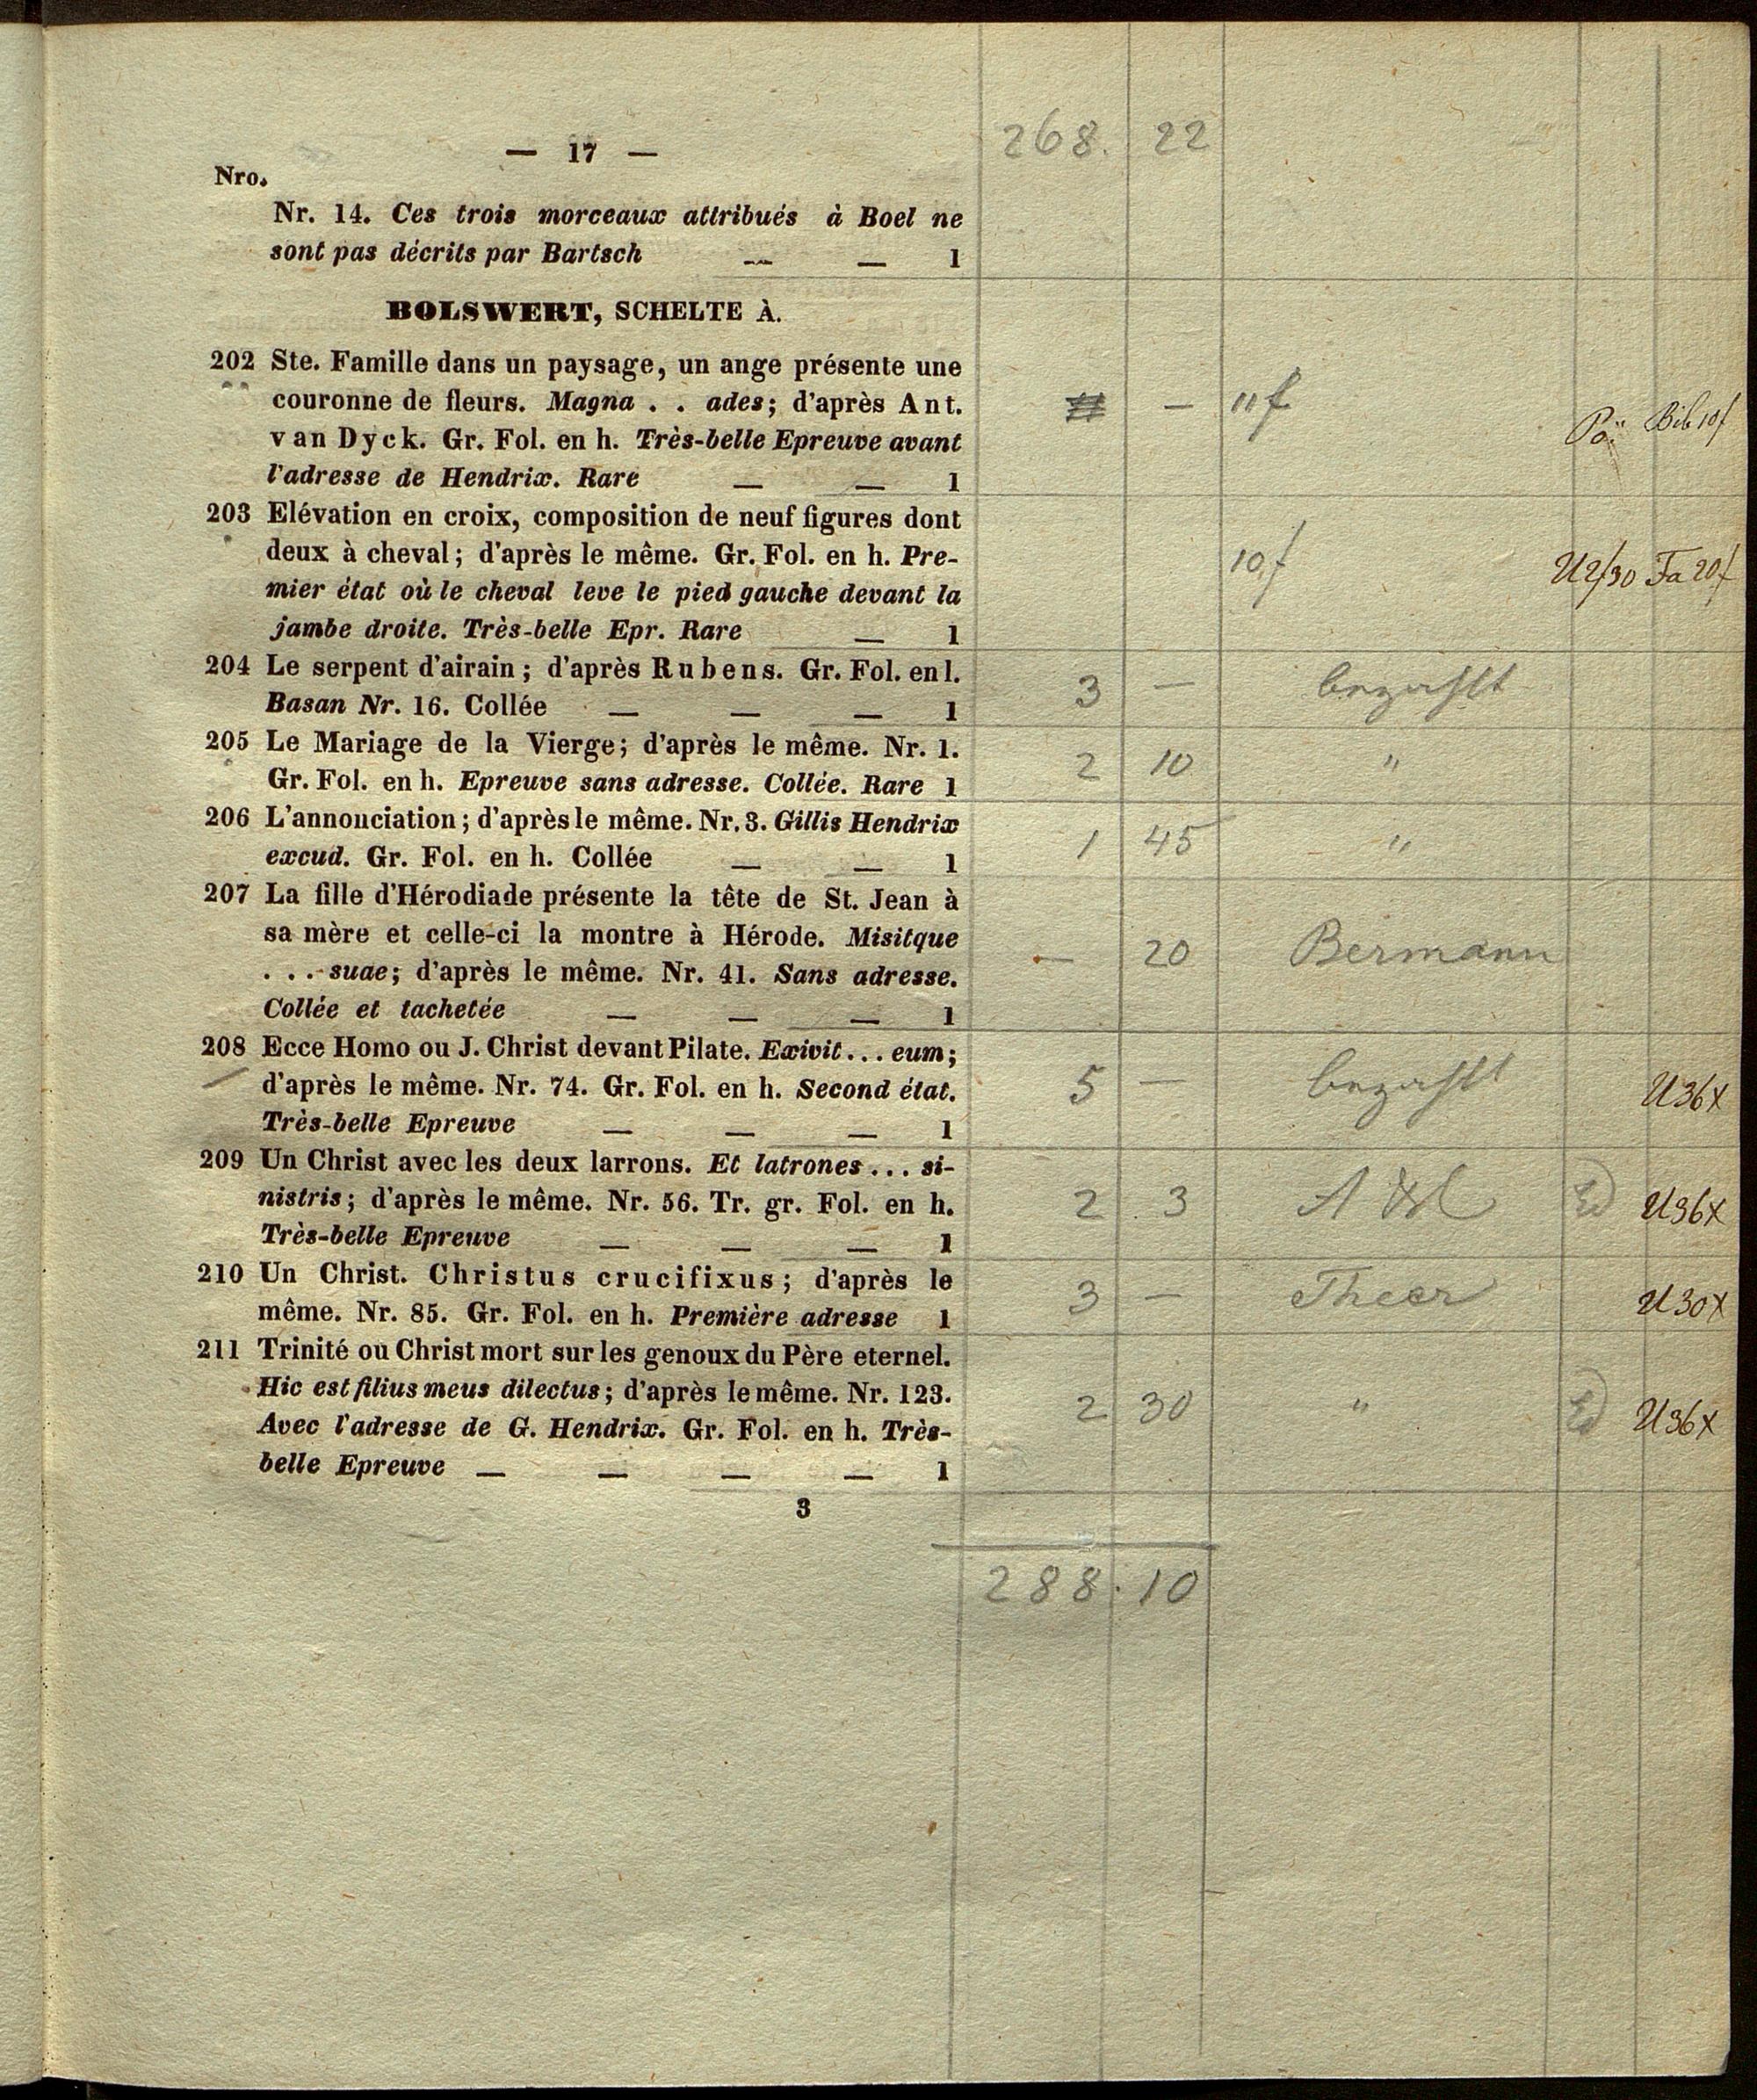 — 17 — 268. 22
Nro.
Nr. 14. Ces trois morceaux attribués à Boel ne
sont pas décrits par Bartsch — — 1
BOLSWERT, SCHELTE À.
202 Ste. Famille dans un paysage, un ange présente une
couronne de fleurs. Magna . . ades; d'après Ant. — 11f Bib 10f
van Dyck. Gr. Fol. en h. Très-belle Epreuve avant
l'adresse de Hendrix. Rare — — 1
203 Elévation en croix, composition de neuf figures dont
deux à cheval; d'après le même. Gr. Fol. en h. Pre- 10f U2/30 Fa 20f
mier état où le cheval leve le pied gauche devant la
jambe droite. Très-belle Epr. Rare — 1
204 Le serpent d'airain; d'après Rubens. Gr. Fol. en l. 3 — bezahlt
Basan Nr. 16. Collée — — — 1
205 Le Mariage de la Vierge; d'après le même. Nr. 1. 2 10 "
Gr. Fol. en h. Epreuve sans adresse. Collée. Rare 1
206 L'annonciation; d'après le même. Nr. 3. Gillis Hendrix 1 45 "
excud. Gr. Fol. en h. Collée — — 1
207 La fille d'Hérodiade présente la tête de St. Jean à
sa mère et celle-ci la montre à Hérode. Misitque — 20 Bermann
. . . suae; d'après le même. Nr. 41. Sans adresse.
Collée et tachetée — — — 1
208 Ecce Homo ou J. Christ devant Pilate. Exivit . . . eum;
d'après le même. Nr. 74. Gr. Fol. en h. Second état. 5 — bezahlt U36x
Très-belle Epreuve — — — 1
209 Un Christ avec les deux larrons. Et latrones . . . si-
nistris; d'après le même. Nr. 56. Tr. gr. Fol. en h. 2 3 U36x
Très-belle Epreuve — — — 1
210 Un Christ. Christus crucifixus; d'après le 3 — Theer U30x
même. Nr. 85. Gr. Fol. en h. Première adresse 1
211 Trinité ou Christ mort sur les genoux du Père eternel.
Hic est filius meus dilectus; d'après le même. Nr. 123. 2 30 " U36x
Avec l'adresse de G. Hendrix. Gr. Fol. en h. Très-
belle Epreuve — — — — 1
3
288. 10